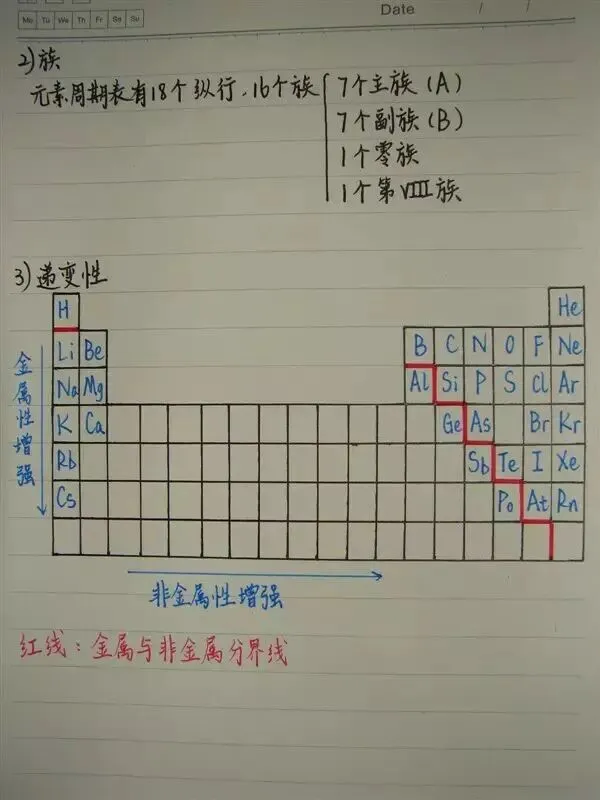 Date / /
Mo Tu We Th Fr Sa Su
2)族
元素周期表有18个纵行,16个族
7个主族(A)
7个副族(B)
1个零族
1个第VIII族
3)递变性
H He
Li Be B C N O F Ne
Na Mg Al Si P S Cl Ar
K Ca Ge As Br Kr
Rb Sb Te I Xe
Cs Po At Rn
金属性增强
非金属性增强
红线:金属与非金属分界线